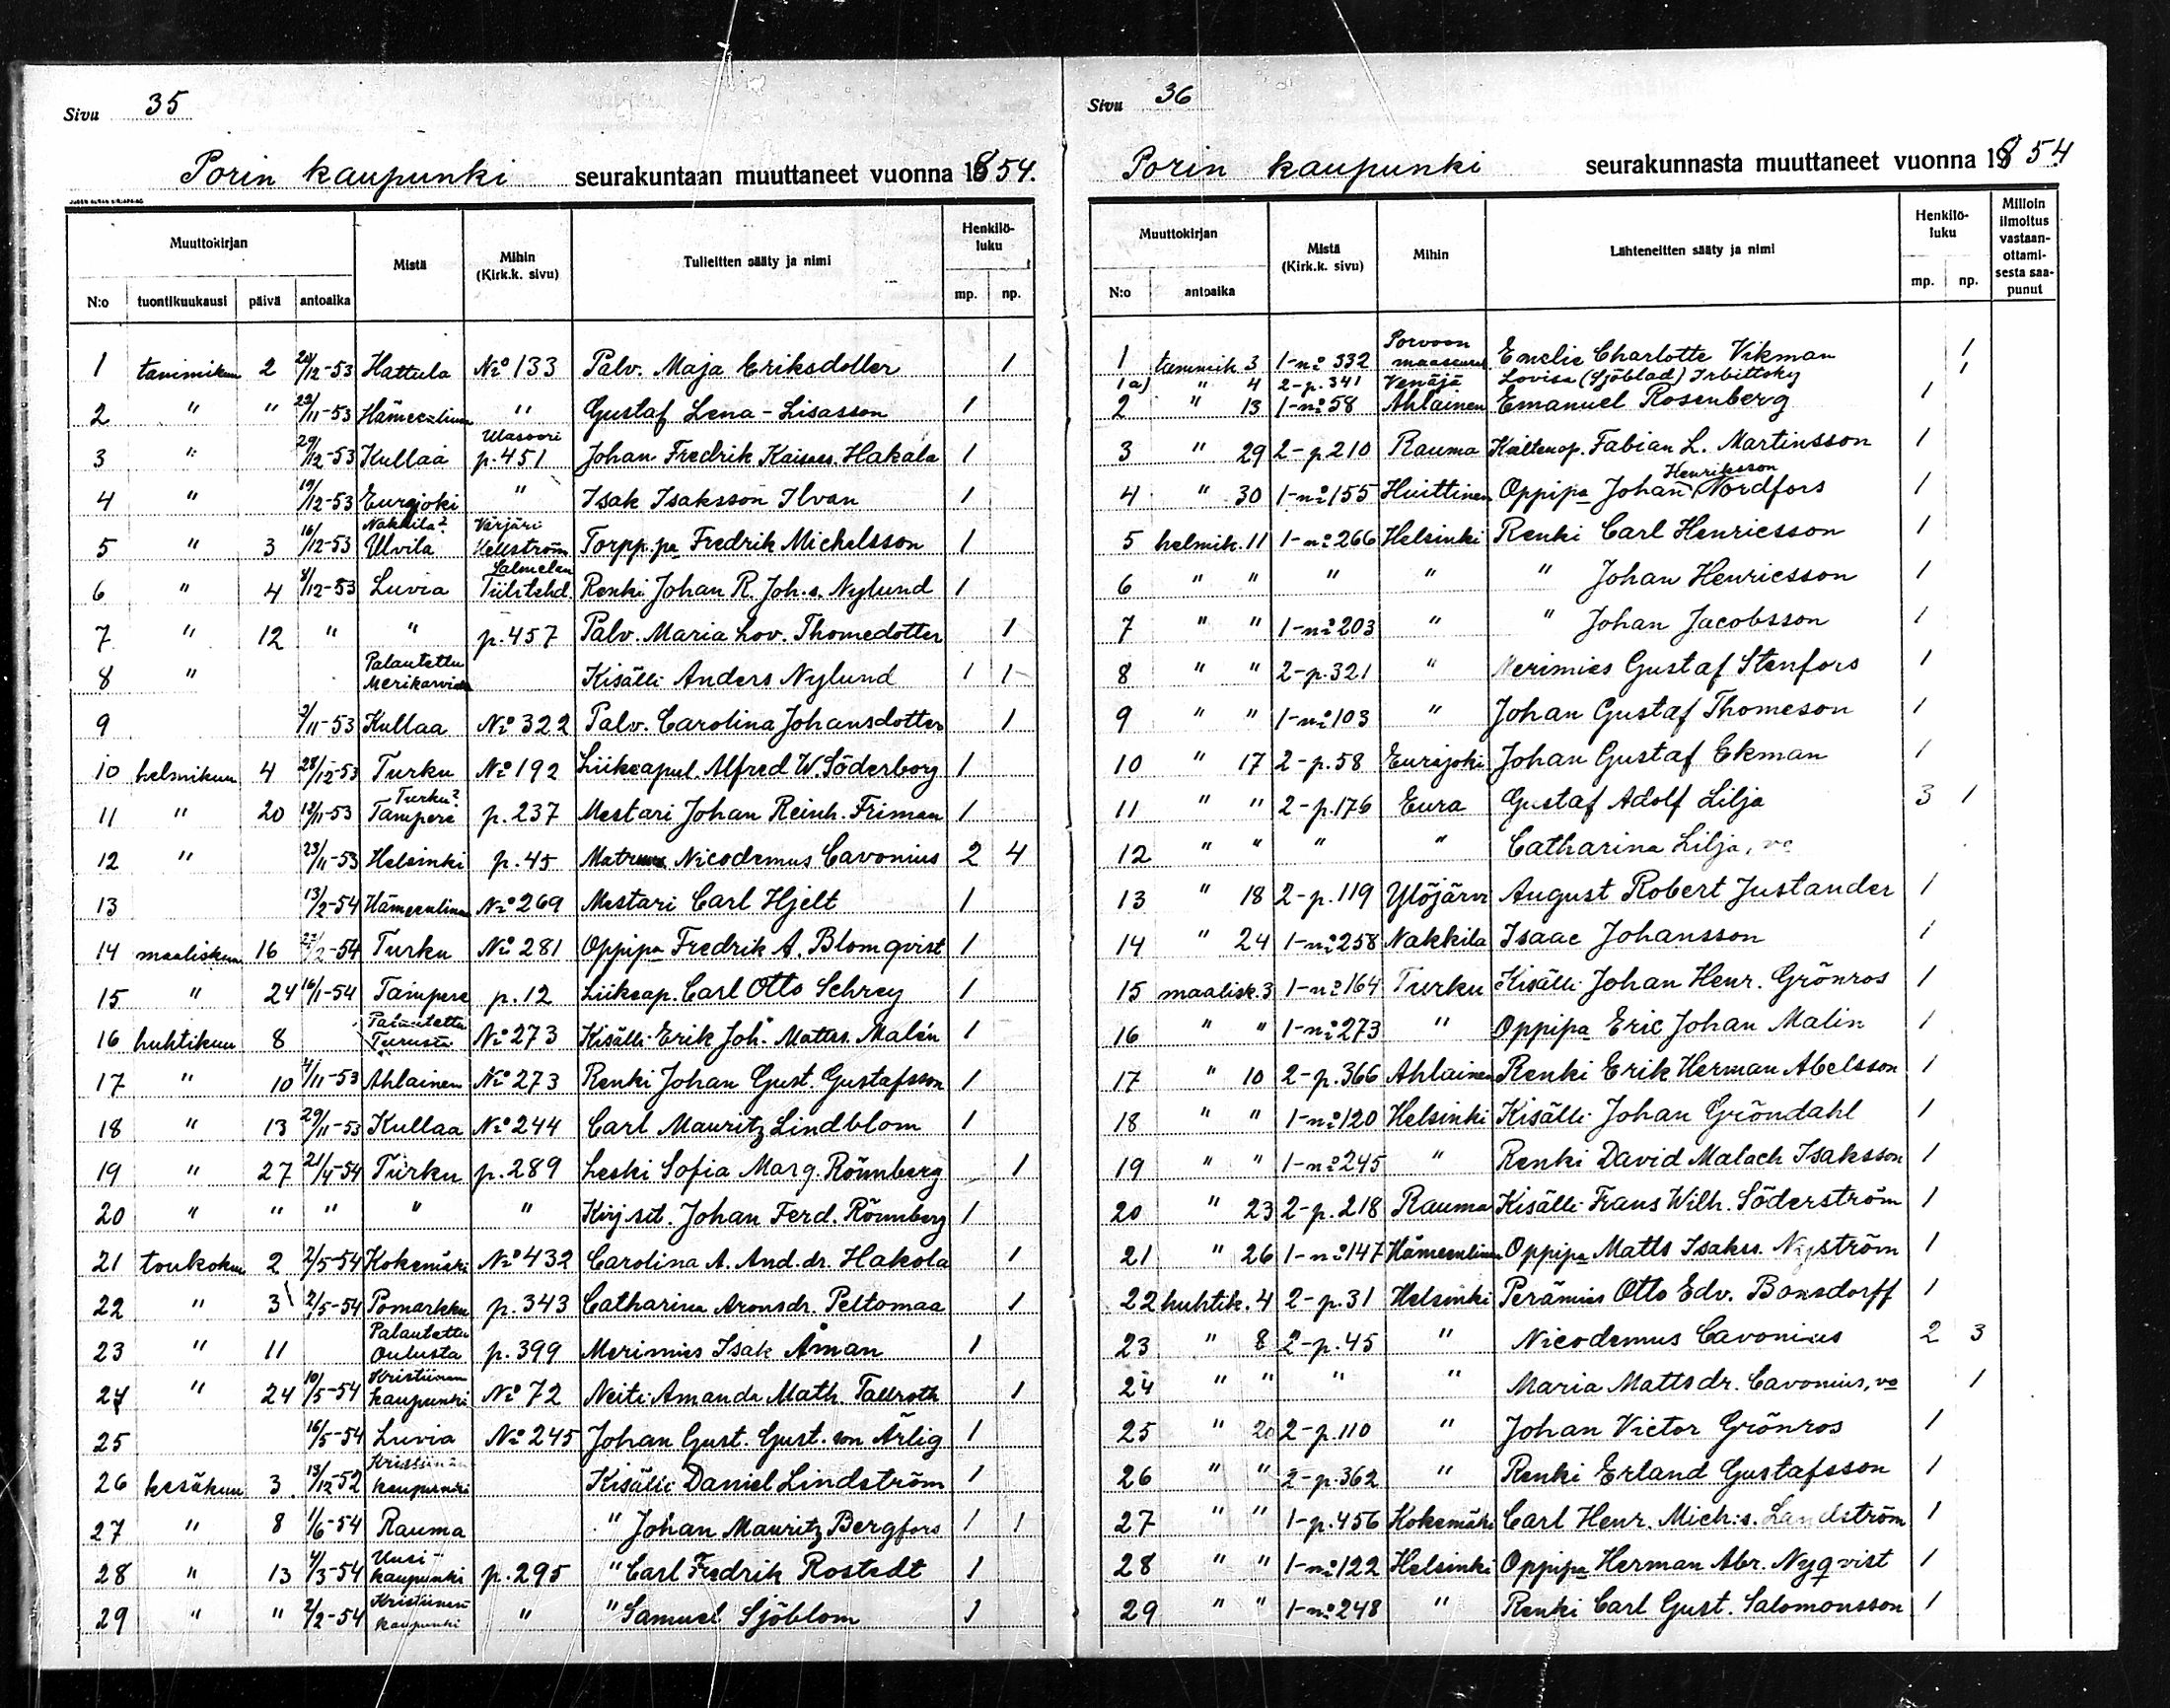 Sivu 35
Porin kaupunki seurakuntaan muuttaneet vuonna 1854.
Muuttokirjan
Mistä
Mihin (Kirk.k. sivu)
Tulleitten sääty ja nimi
Henkilö-luku
N:o tuontikuukausi päivä antoaika mp. np.
1 tammikuu 2 22/12-53 Hattula No 133 Palv. Maja Eriksdotter 1
2 " " 22/11-53 Hämeenlinna " Gustaf Lena-Lisasson 1
3 " 29/12-53 Kullaa Ulasoori p.451 Johan Fredrik Kaisass. Hakala 1
4 " 19/12-53 Eurajoki " Isak Isaksson Ilvan 1
5 " 3 16/12-53 Nakkila? Ulvila Värjäri Hellström Torpp.pa Fredrik Michelsson 1
6 " 4 8/12-53 Luvia Salmelan Tiilitehd. Renki Johan R. Joh.s. Nylund 1
7 " 12 " " p.457 Palv. Maria Lov. Thomedotter 1
8 " Palautettu Merikarvialta Kisälli Anders Nylund 1 1
9 2/11-53 Kullaa No 322 Palv. Carolina Johansdotter 1
10 helmikuu 4 28/12-53 Turku No 192 Liikeapul. Alfred W. Söderborg 1
11 " 20 12/11-53 Turku? Tampere p.237 Mestari Johan Reinh. Friman 1
12 " 23/11-53 Helsinki p.45 Nicodemus Cavonius 2 4
13 13/2-54 Hämeenlinna No 269 Mestari Carl Hjelt 1
14 maaliskuu 16 27/2-54 Turku No 281 Oppipa Fredrik A. Blomqvist 1
15 " 24 16/1-54 Tampere p.12 Liikeap. Carl Otto Schrey 1
16 huhtikuu 8 Palautettu Turusta No 273 Kisälli Erik Joh. Mattss. Malén 1
17 " 10 4/11-53 Ahlainen No 273 Renki Johan Gust. Gustafsson 1
18 " 13 29/11-53 Kullaa No 244 Carl Mauritz Lindblom 1
19 " 27 21/4-54 Turku p.289 Leski Sofia Marg. Rönnberg 1
20 " " " " " Kirj.sit. Johan Ferd. Rönnberg 1
21 toukokuu 2 2/5-54 Kokemäki No 432 Carolina A. And.dr. Hakola 1
22 " 3 2/5-54 Pomarkku p.343 Catharina Aronsdr. Peltomaa 1
23 " 11 Palautettu Oulusta p.399 Merimies Isak Åman 1
24 " 24 10/5-54 Kristiinan kaupunki No 72 Neiti Amanda Math. Tallroth 1
25 16/5-54 Luvia No 245 Johan Gust. Gust. son Ärlig 1
26 kesäkuu 3 13/12-52 Kristiinan kaupunki Kisälli Daniel Lindström 1
27 " 8 1/6-54 Rauma " Johan Mauritz Bergfors 1 1
28 " 13 4/3-54 Uusi-kaupunki p.295 " Carl Fredrik Rostedt 1
29 " " 2/2-54 Kristiinan kaupunki " " Samuel Sjöblom 1
Sivu 36
Porin kaupunki seurakunnasta muuttaneet vuonna 1854
Muuttokirjan
Mistä (Kirk.k. sivu)
Mihin
Lähteneitten sääty ja nimi
Henkilö-luku
Milloin ilmoitus vastaan-ottami-sesta saa-punut
N:o antoaika mp. np.
1 tammik. 3 1-no 332 Porvoon maaseurak Emelie Charlotte Vikman 1
1a) " 4 2-p.341 Venäjä Lovisa (Sjöblad) Irbittsky 1
2 " 13 1-no 58 Ahlainen Emanuel Rosenberg 1
3 " 29 2-p.210 Rauma Fabian L. Martinsson 1
4 " 30 1-no 155 Huittinen Oppipa Johan Henriksson Nordfors 1
5 helmik. 11 1-no 266 Helsinki Renki Carl Henricsson 1
6 " " " " " Johan Henricsson 1
7 " " 1-no 203 " " Johan Jacobsson 1
8 " " 2-p.321 " Merimies Gustaf Stenfors 1
9 " " 1-no 103 " Johan Gustaf Thomeson 1
10 " 17 2-p.58 Eurajoki Johan Gustaf Ekman 1
11 " " 2-p.176 Eura Gustaf Adolf Lilja 3 1
12 " " " " Catharina Lilja, vo
13 " 18 2-p.119 Ylöjärvi August Robert Justander 1
14 " 24 1-no 258 Nakkila Isaac Johansson 1
15 maalisk. 3 1-no 164 Turku Kisälli Johan Henr. Grönros 1
16 " " 1-no 273 " Oppipa Eric Johan Malin 1
17 " 10 2-p.366 Ahlainen Renki Erik Herman Abelsson 1
18 " " 1-no 120 Helsinki Kisälli Johan Gröndahl 1
19 " " 1-no 245 " Renki David Malach Isaksson 1
20 " 23 2-p.218 Rauma Kisälli Frans Wilh. Söderström 1
21 " 26 1-no 147 Hämeenlinna Oppipa Matts Isakss. Nyström 1
22 huhtik. 4 2-p.31 Helsinki Perämies Otto Edv. Bonsdorff 1
23 " 8 2-p.45 " Nicodemus Cavonius 2 3
24 " " " " Maria Mattsdr. Cavonius, vo 1
25 " 20 2-p.110 " Johan Victor Grönros 1
26 " " 2-p.362 " Renki Erland Gustafsson 1
27 " " 1-p.456 Kokemäki Carl Henr. Mich:s. Landström 1
28 " " 1-no 122 Helsinki Oppipa Herman Abr. Nyqvist 1
29 " " 1-no 248 " Renki Carl Gust. Salomonsson 1